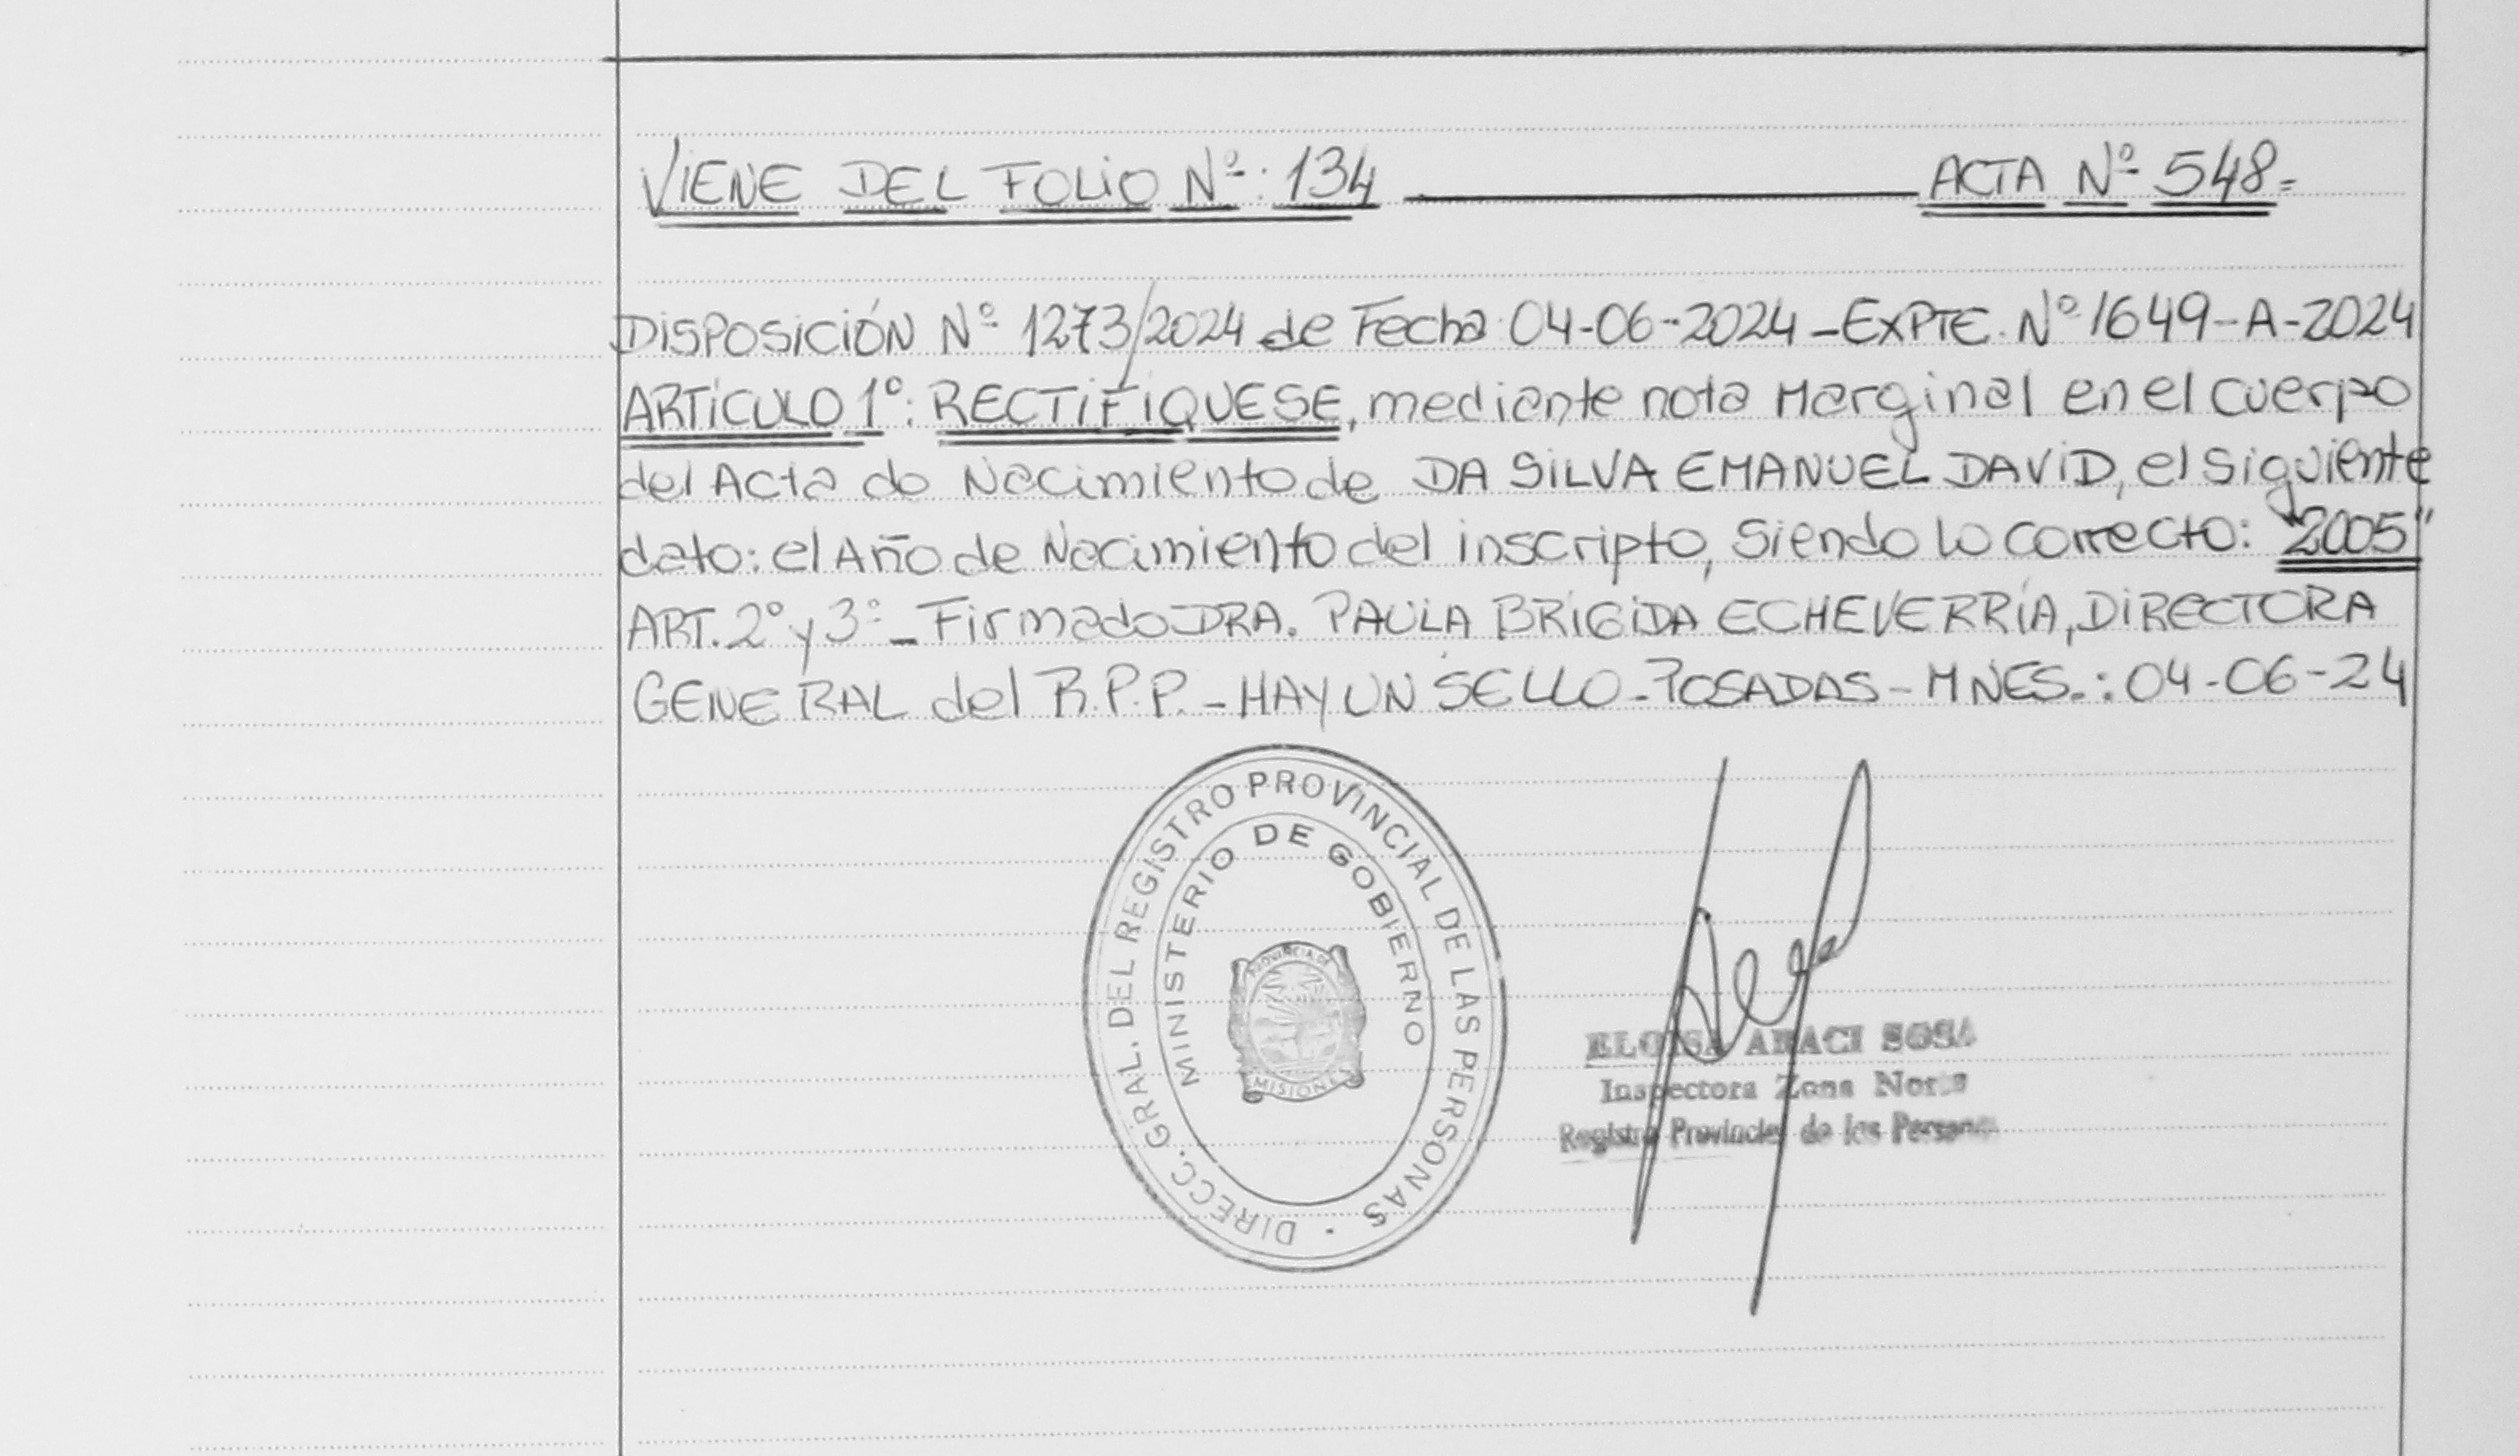 VIENE DEL FOLIO Nº: 134 ACTA Nº 548.=
DISPOSICIÓN Nº 1273/2024 de Fecha 04-06-2024 - EXPTE. Nº 1649-A-2024
ARTÍCULO 1º: RECTIFIQUESE, mediante nota Marginal en el cuerpo
del Acta de Nacimiento de DA SILVA EMANUEL DAVID, el siguiente
dato: el Año de Nacimiento del inscripto, siendo lo correcto: "2005"
ART. 2º y 3º - Firmado DRA. PAULA BRÍGIDA ECHEVERRÍA, DIRECTORA
GENERAL del R.P.P. - HAY UN SELLO - POSADAS - MNES.: 04-06-24
DIRECC. GRAL. DEL REGISTRO PROVINCIAL DE LAS PERSONAS
MINISTERIO DE GOBIERNO
PROVINCIA DE
MISIONES
ELOISA ARACI SOSA
Inspectora Zona Norte
Registro Provincial de las Personas